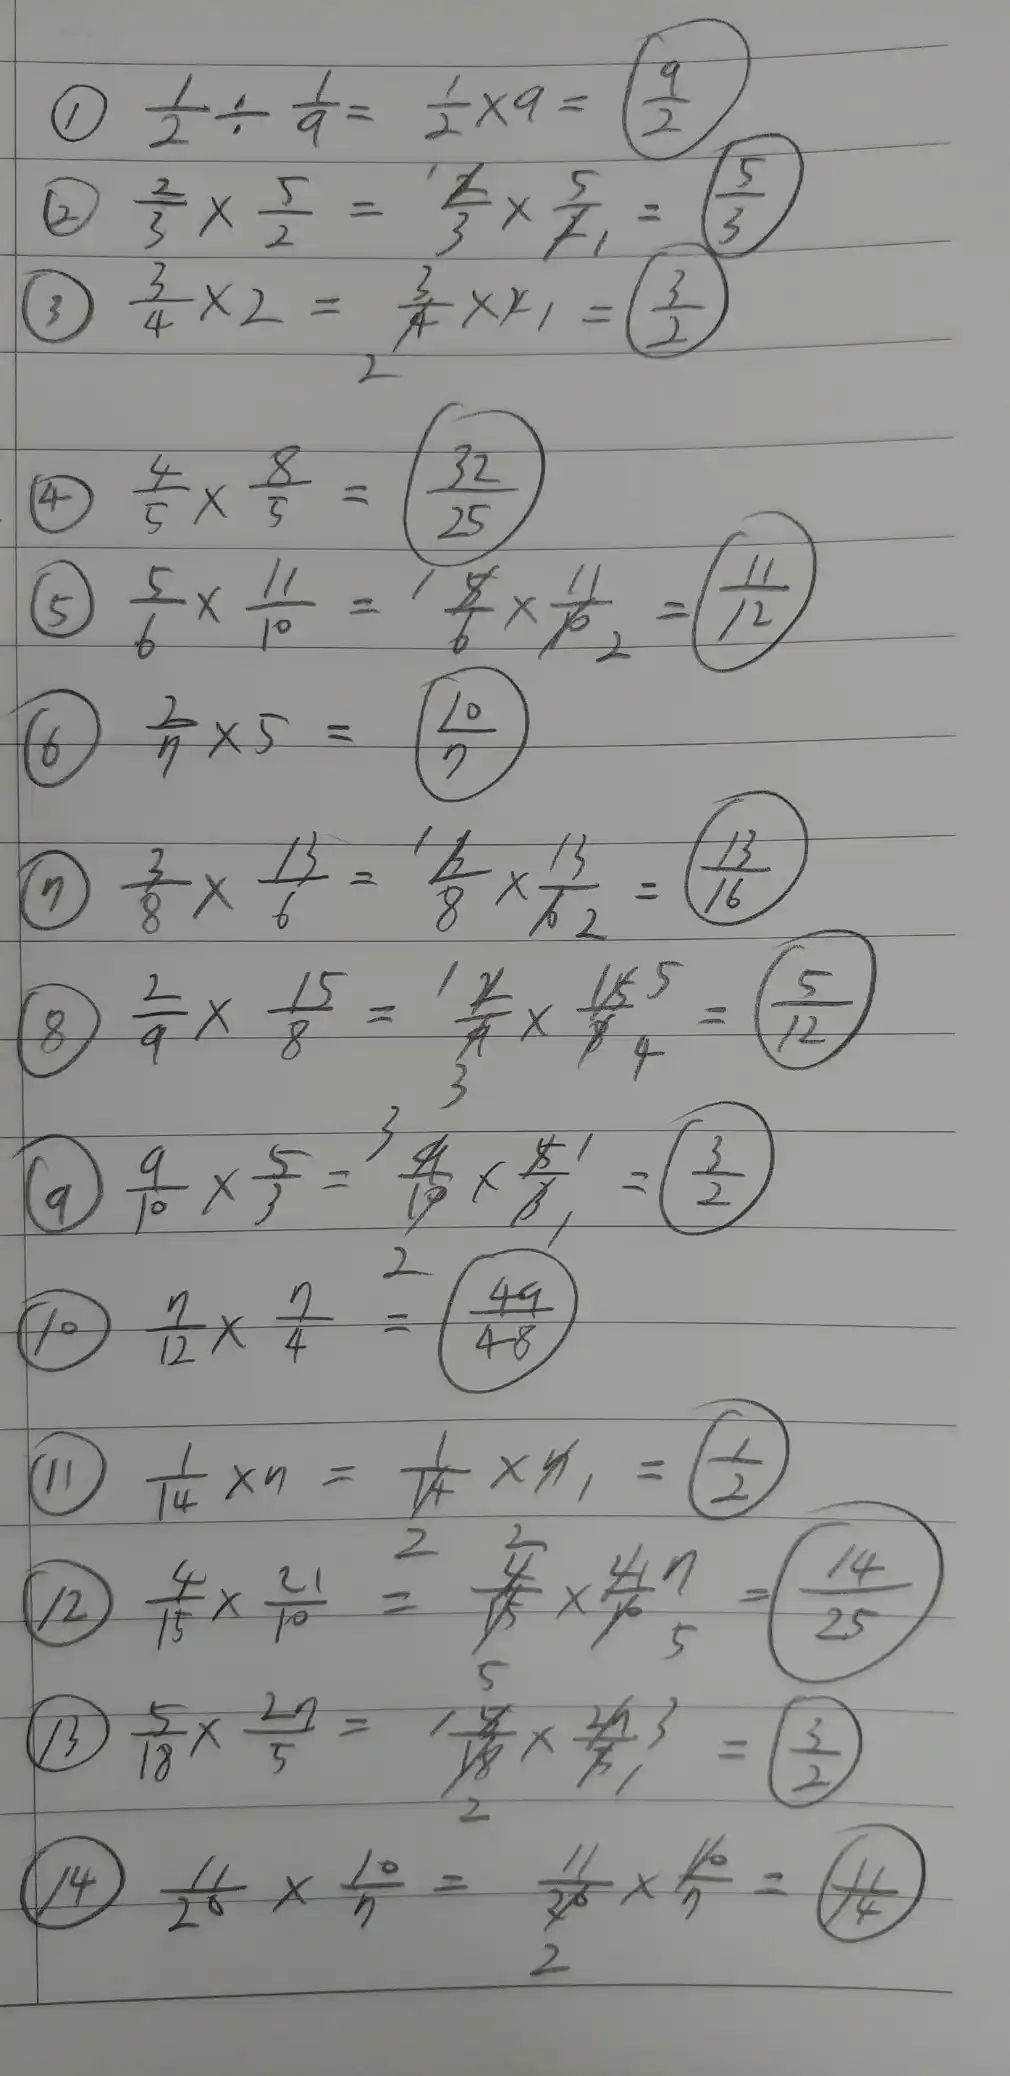 ① 1/2 ÷ 1/9 = 1/2 × 9 = 9/2
② 2/3 × 5/2 = 1 2/3 × 5/2 1 = 5/3
③ 3/4 × 2 = 3/4 × 2 1 = 3/2
2
④ 4/5 × 8/5 = 32/25
⑤ 5/6 × 11/10 = 1 5/6 × 11/10 2 = 11/12
⑥ 2/7 × 5 = 10/7
⑦ 3/8 × 13/6 = 1 3/8 × 13/6 2 = 13/16
⑧ 2/9 × 15/8 = 1 2/9 × 15/8 5 4 = 5/12
3
⑨ 9/10 × 5/3 = 3 9/10 × 5/3 1 1 = 3/2
2
⑩ 7/12 × 7/4 = 49/48
⑪ 1/14 × 7 = 1/14 × 7 1 = 1/2
2
⑫ 4/15 × 21/10 = 2 4/15 × 21/10 7 5 = 14/25
5
⑬ 5/18 × 27/5 = 1 5/18 × 27/5 3 1 = 3/2
2
⑭ 11/20 × 10/7 = 11/20 × 10/7 = 11/14
2